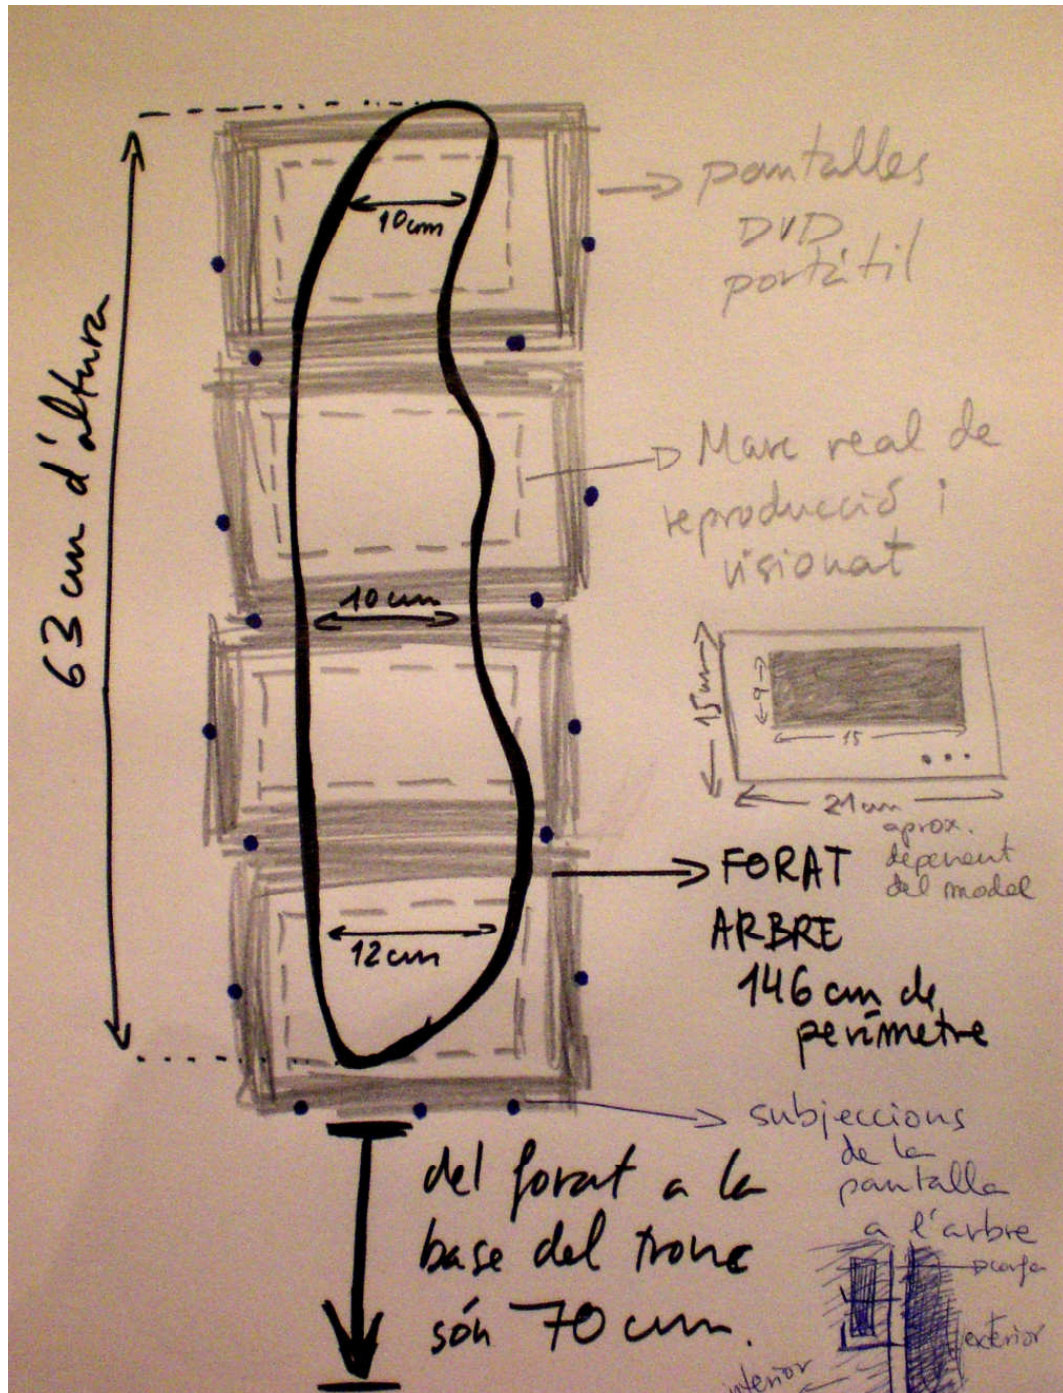 63 cm d'altura
10cm
pantalles
DVD
portàtil
Marc real de
reproducció i
visionat
10cm
15cm
9
15
21cm
aprox.
depenent
del model
FORAT
ARBRE
146 cm de
perímetre
12cm
subjeccions
de la
pantalla
a l'arbre
del forat a la
base del tronc
són 70 cm.
exterior
interior